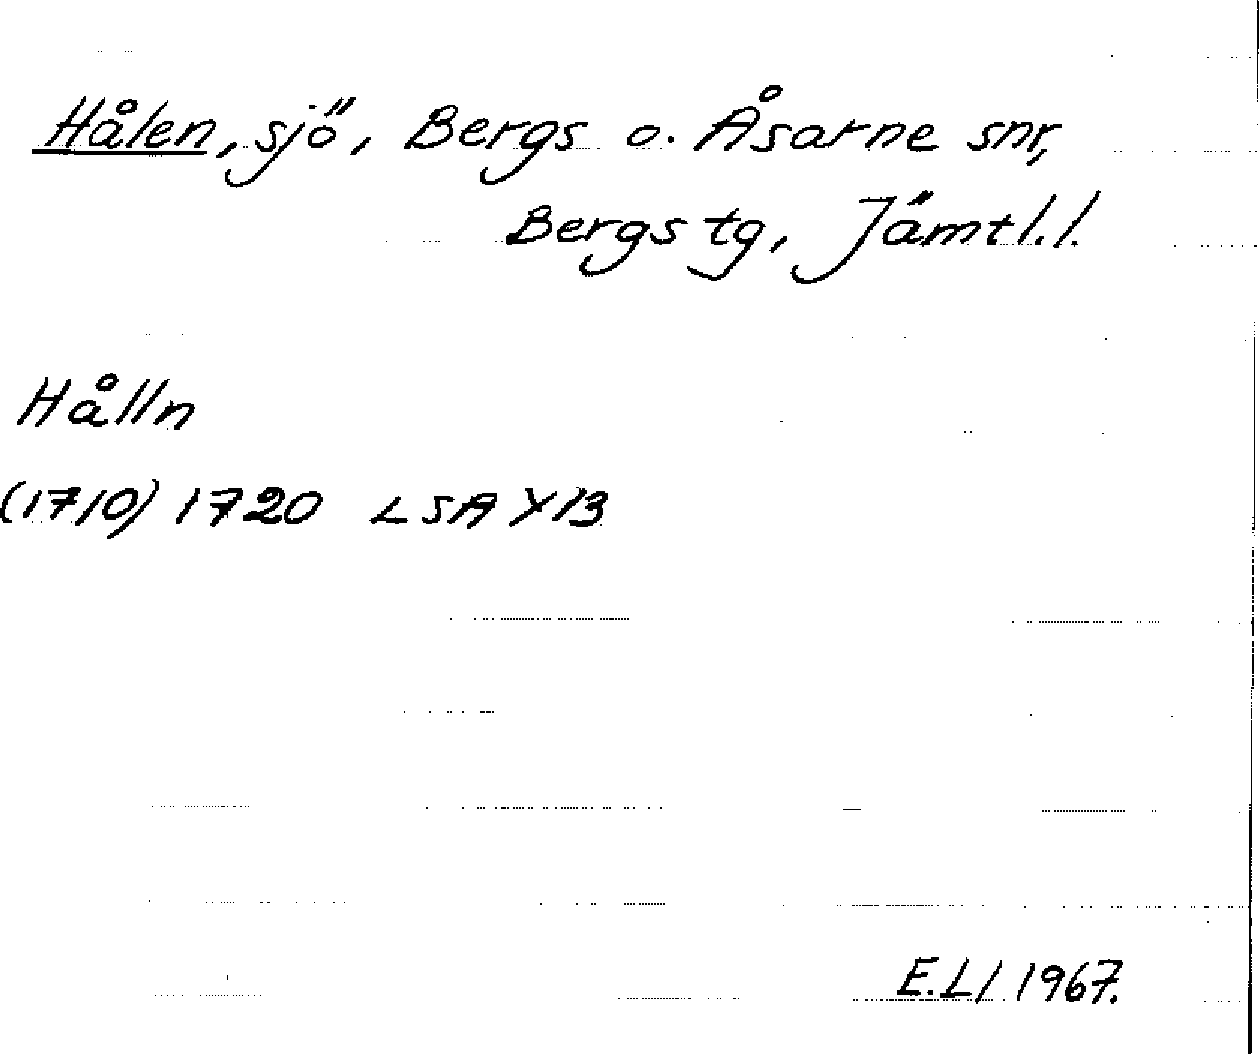 Hålen, sjö, Bergs o. Åsarne snr,
Bergs tg, Jämtl.l.
Hålln
(1710) 1720 LSA Y13
E.L/ 1967.